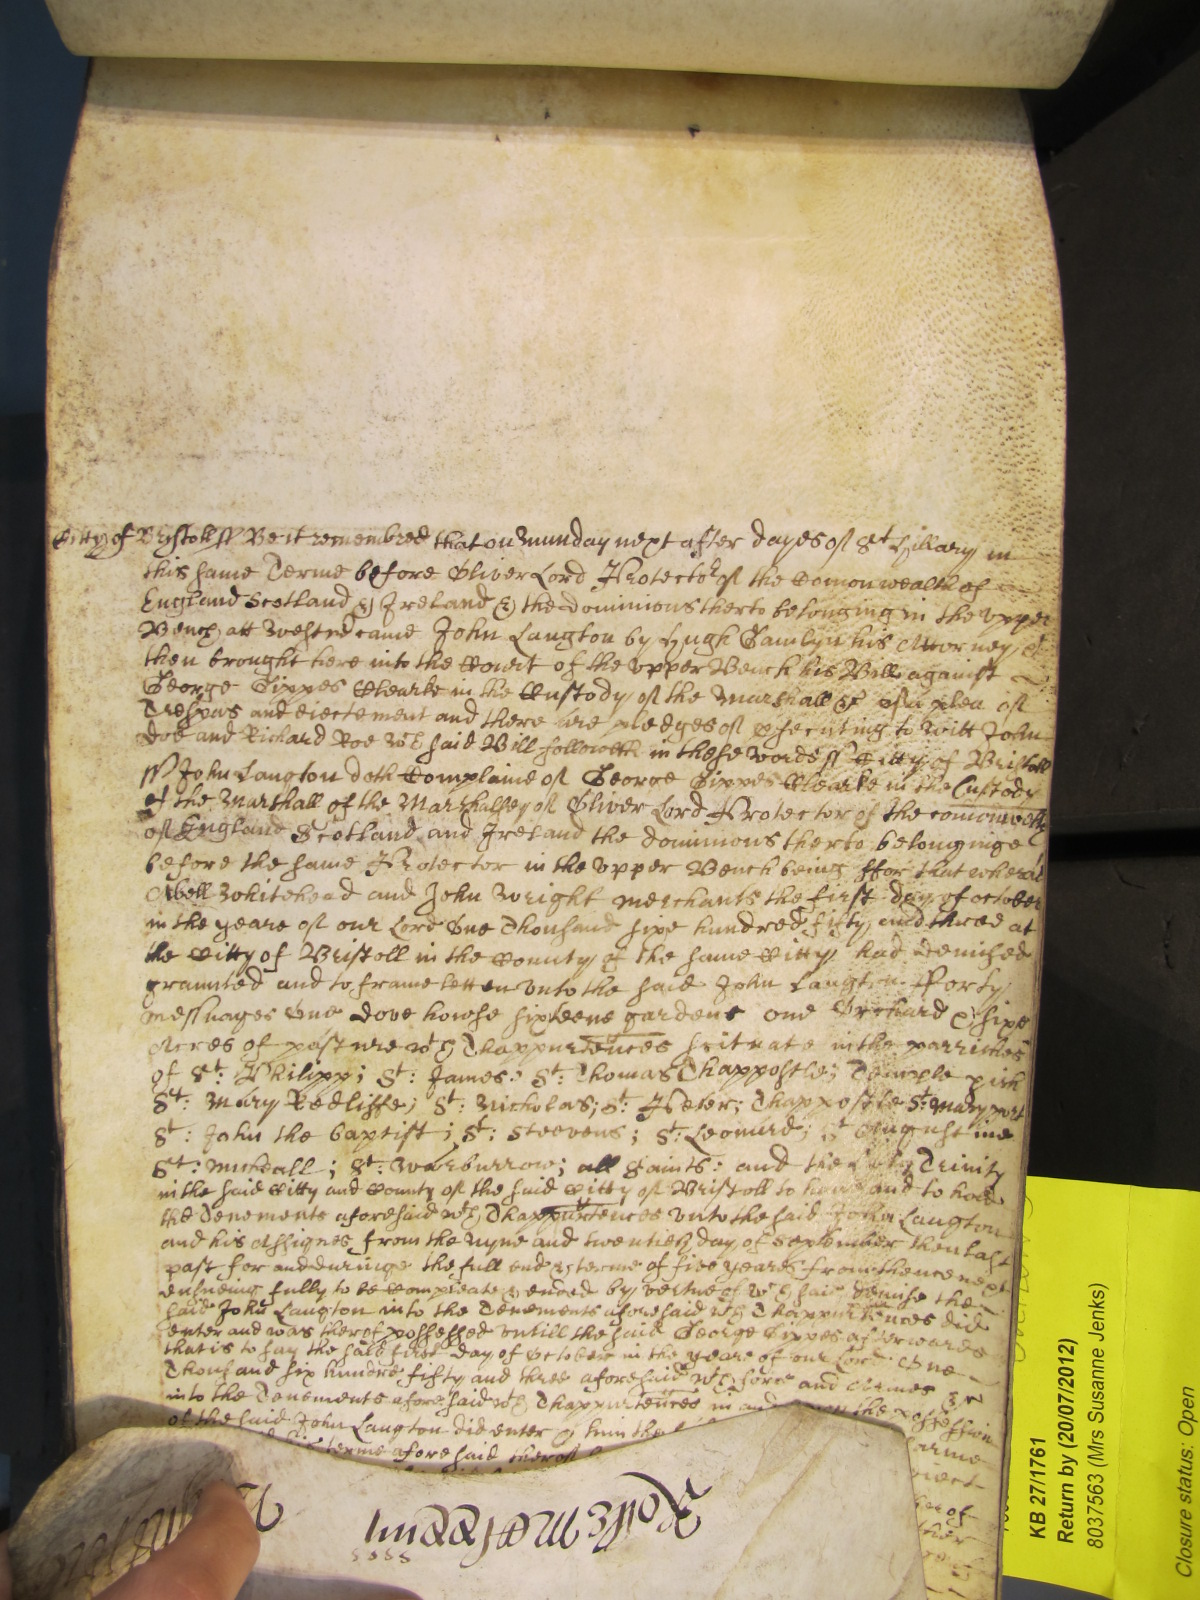 Citty of Bristoll ss Be it remembred that on Munday next after dayes of St Hillary in
this same Terme before Oliver Lord Protector of the Comonwealth of
England Scotland & Ireland & the dominions therto belonging in the upper
Bench att Westmr came John Langton by Hugh his Attorney &
then brought here into the Court of the upper Bench his Bill against
George Tippes Clearke in the Custody of the Marshall &c of a plea of
Trespas and eiectement and there are pledges of psecuting to witt John
Doe and Richard Roe wch said Bill followeth in these words ss Citty of Bristoll
ss John Langton doth Complaine of George Tippes Clearke in the Custody
of the Marshall of the Marshalsey of Oliver Lord Protector of the comonwealth
of England Scotland and Ireland the dominions therto belonginge
before the same Protector in the upper Bench being ffor that wheras
Abell Whitehead and John Wright merchants the first day of october
in the yeare of our Lord One Thousand sixe hundred fifty and three at
the Citty of Bristoll in the County of the same Citty had demised
graunted and to frame letten unto the said John Langton fforty
messuages One dove howse sixteene gardens one Orchard & sixe
Acres of pasture wth Thappurtences scituate in the parrishes
of St: Phillipp; St: James: St: Thomas Thappostle; Temple pish
St: Mary Redliffe; St: Nicholas; St: Peter; Thappostle St: Mary port
St: John the baptist; St: Steevens; St: Leonard; St Augustine
St: Michaell; St: Warburrow; all Saints: and the Holy Trinity
in the said Citty and County of the said Citty of Bristoll to have and to hold
the Tenements aforesaid wth Thappurtences unto the said John Langton
and his Assignes from the nyne and twentieth day of September then last
past for and duringe the full end & terme of five yeares from thence next
ensueing fully to be Compleate & ended by vertue of wch said demise the
said John Langton into the Tenements aforesaid wth Thappurtences did
enter and was therof possessed untill the said George Tippes afterwards
that is to say the said first day of October in the yeare of our Lord One
Thousand six hundred fifty and three aforesaid wth force and Armes &c
into the Tenements aforesaid wth Thappurtences in and upon the possession
of the said John Langton did enter & him the
terme aforesaid therof
KB 27/1761
Return by (20/07/2012)
8037563 (Mrs Susanne Jenks)
Closure status: Open